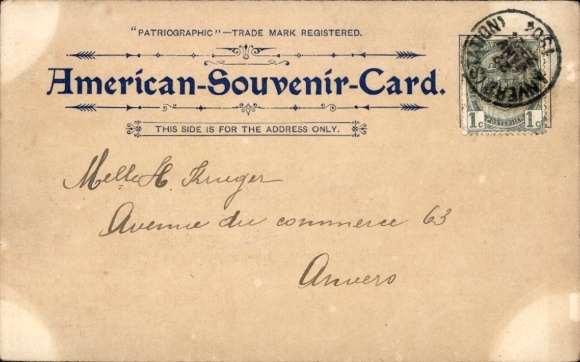 "PATRIOGRAPHIC"—TRADE MARK REGISTERED.
American-Souvenir-Card.
THIS SIDE IS FOR THE ADDRESS ONLY.
1904
ANVERS
1c 1c
Melle H. Krueger
Avenue du commerce 63
Anvers